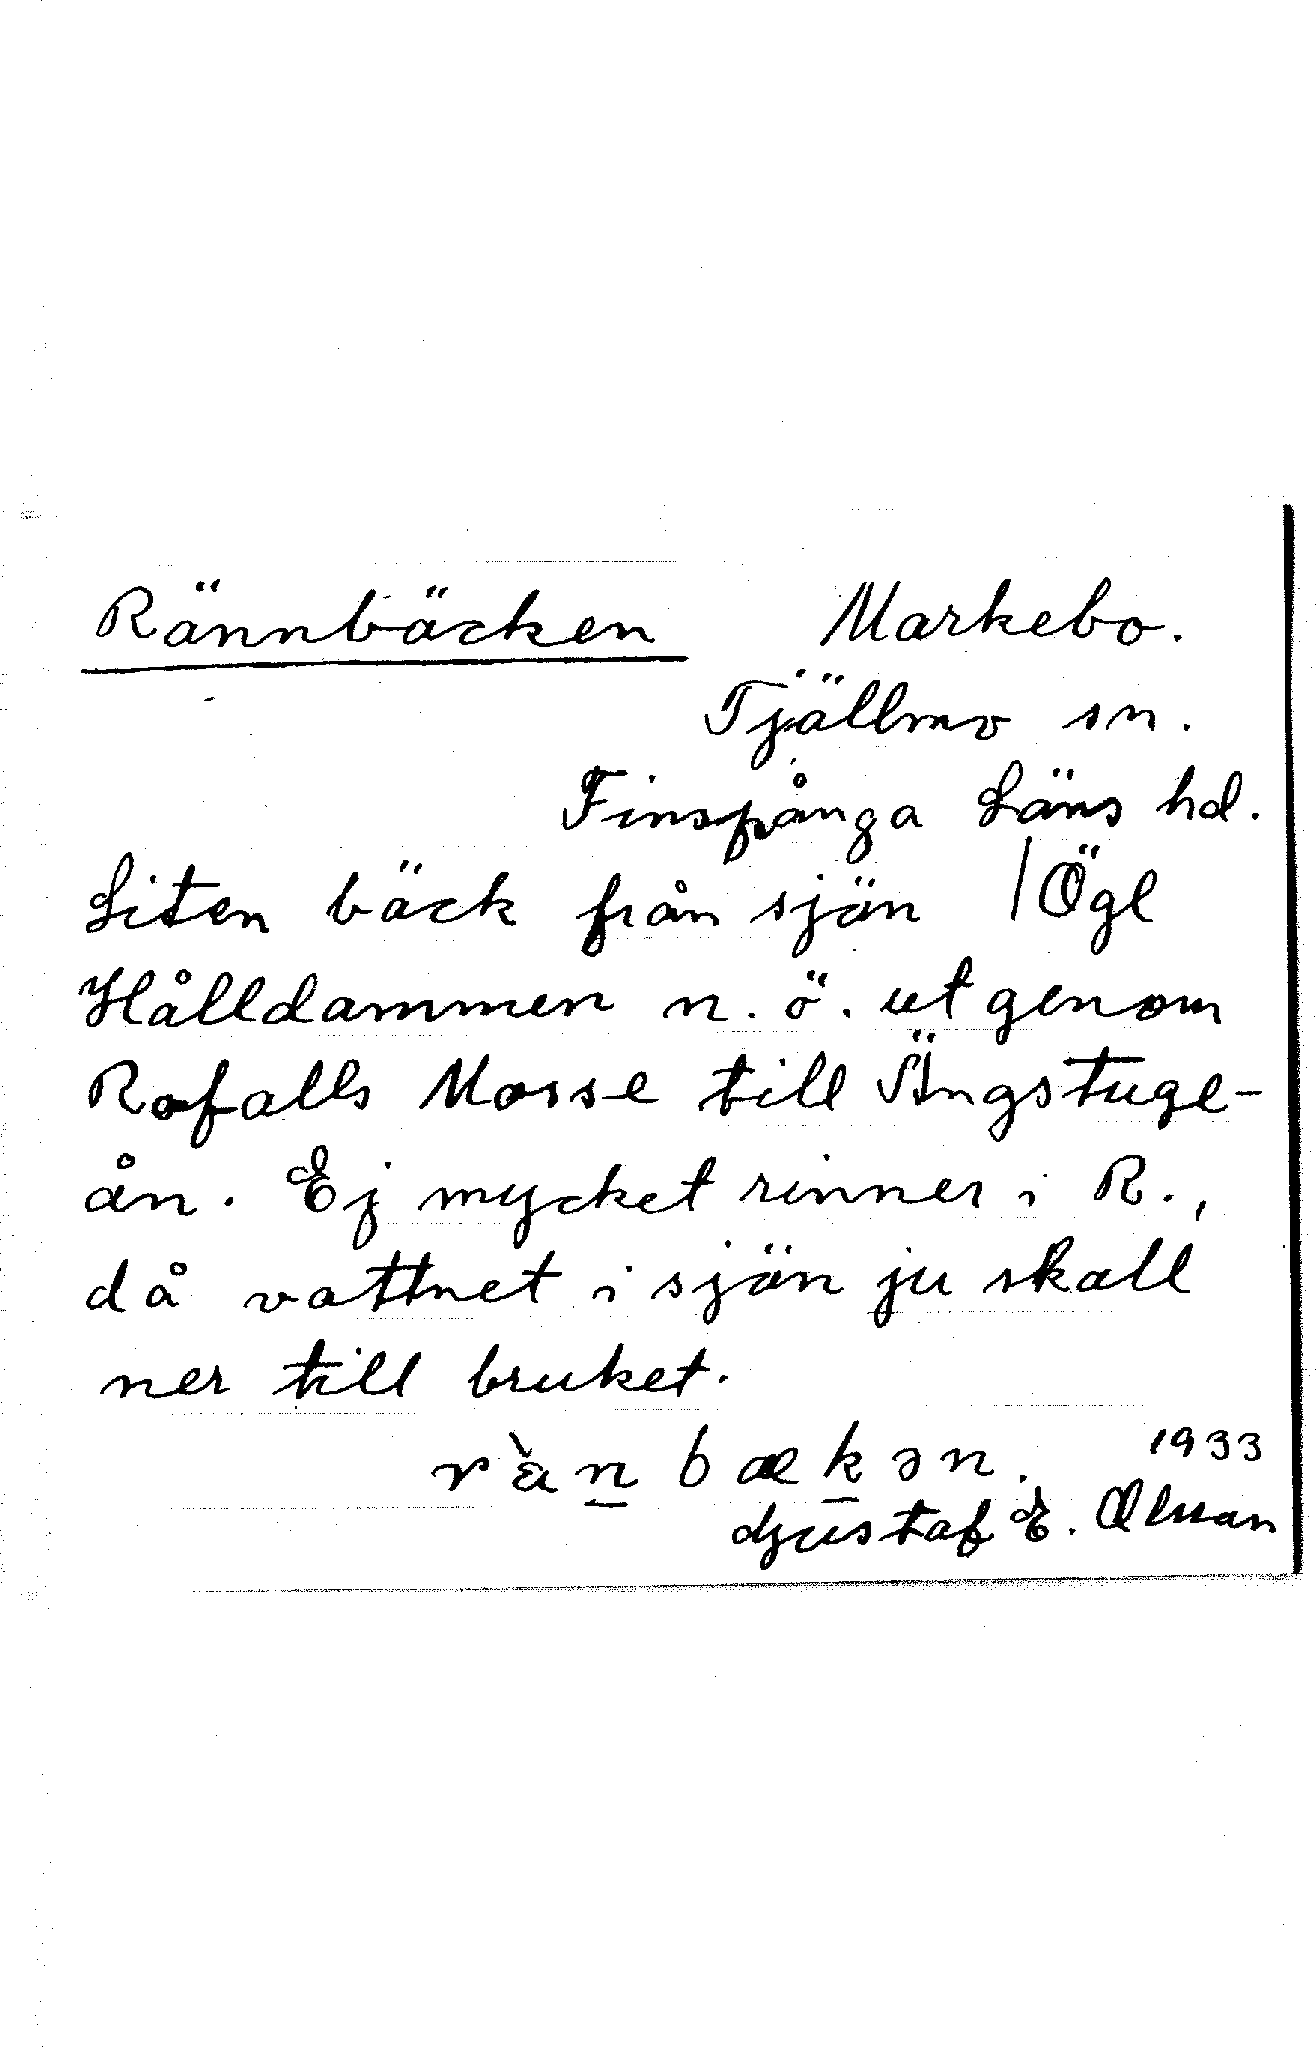 Rännbäcken Markebo.
Tjällmo sn.
Finspånga Läns hd.
Liten bäck från sjön / Ögl
Hålldammen n. ö. ut genom
Rofalls Mosse till Ängstuge-
ån. Ej mycket rinner i R.,
då vattnet i sjön ju skall
ner till bruket.
1933
Gustaf E.